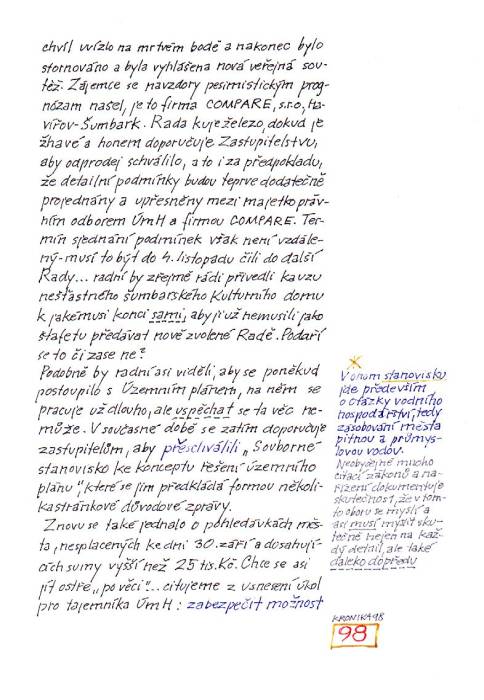 chvíl uvízlo na mrtvém bodě a nakonec bylo
stornováno a byla vyhlášena nová veřejná sou-
těž. Zájemce se navzdory pesimistickým prog-
nózam našel, je to firma COMPARE, s.r.o., Ha-
vířov-Šumbark. Rada kuje železo, dokud je
žhavé a honem doporučuje Zastupitelstvu,
aby odprodej schválilo, a to i za předpokladu,
že detailní podmínky budou teprve dodatečně
projednány a upřesněny mezi majetkopráv-
ním odborem ÚmH a firmou COMPARE. Ter-
mín sjednání podmínek však není vzdále-
ný-musí to být do 4. listopadu čili do další
Rady... radní by zřejmě rádi přivedli kauzu
nešťastného šumbarského Kulturního domu
k jakémusi konci sami, aby ji už nemusili jako
štafetu předávat nově zvolené Radě. Podaří
se to či zase ne?
Podobně by radní asi viděli, aby se poněkud
postoupilo s Územním plánem, na něm se
pracuje už dlouho, ale uspěchat se ta věc ne-
může. V současné době se zatím doporučuje
zastupitelům, aby přeschválili „Souborné
stanovisko ke konceptu řešení územního
plánu", které se jim předkládá formou několi-
kastránkové důvodové zprávy.
Znovu se také jednalo o pohledávkách měs-
ta, nesplacených ke dni 30. září a dosahují-
cích sumy vyšší než 25 tis. Kč. Chce se asi
jít ostře „po věci"... citujeme z usnesení úkol
pro tajemníka ÚmH: zabezpečit možnost
V onom stanovisku
jde především
o otázky vodního
hospodářství, tedy
zásobování města
pitnou a průmys-
lovou vodou.
Neobyčejně mnoho
citací zákonů a na-
řízení dokumentuje
skutečnost, že v tom-
to oboru se myslí a
asi musí myslit sku-
tečně nejen na kaž-
dý detail, ale také
daleko dopředu
KRONIKA 98
98